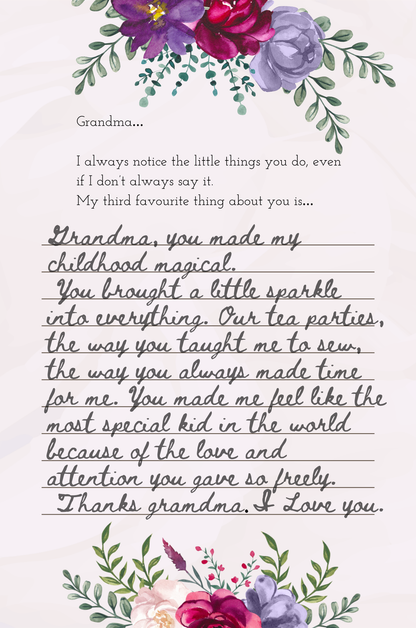 Grandma...
I always notice the little things you do, even
if I don't always say it.
My third favourite thing about you is...
Grandma, you made my
childhood magical.
You brought a little sparkle
into everything. Our tea parties,
the way you taught me to sew,
the way you always made time
for me. You made me feel like the
most special kid in the world
because of the love and
attention you gave so freely.
Thanks grandma. I Love you.